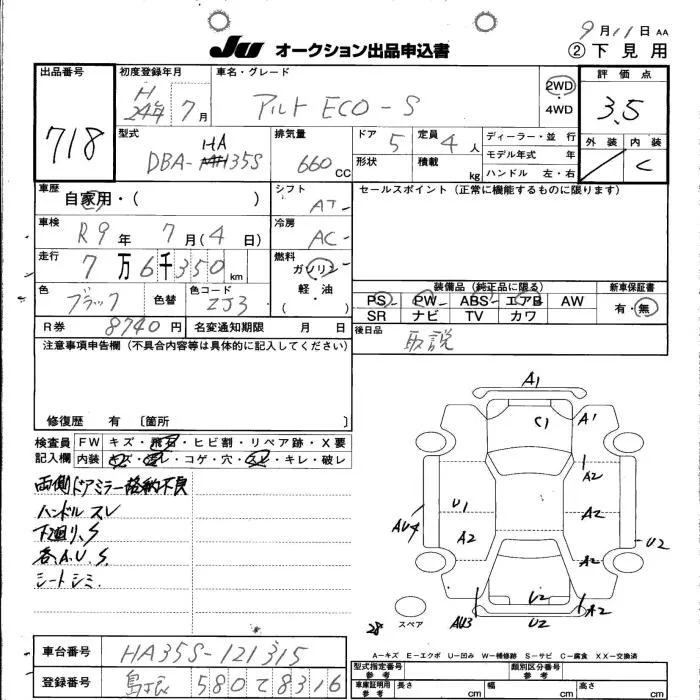 9月11日 AA
JU オークション出品申込書
② 下見用
出品番号
718
初度登録年月
H 24年 7月
車名・グレード
アルト ECO-S
2WD
・4WD
評価点
3.5
外装 内装
C
型式
DBA-HA35S
排気量
660 CC
ドア 5
形状
定員 4人
積載 kg
ディーラー・並行
モデル年式 年
ハンドル 左・右
車歴
自家用・( )
シフト
AT
セールスポイント(正常に機能するものに限ります)
車検
R9年 7月(4日)
冷房
AC
走行
7万6千350km
燃料
ガソリン
軽・油
( )
色
ブラック
色替
色コード
ZJ3
装備品(純正品に限る)
PS PW ABS エアB AW
SR ナビ TV カワ
新車保証書
有・無
R券 8740円
名変通知期限 月 日
後日品
取説
注意事項申告欄(不具合内容等は具体的に記入してください)
修復歴 有 [箇所 ]
検査員
記入欄
FW キズ・飛石・ヒビ割・リペア跡・X要
内装 キズ・汚レ・コゲ・穴・スレ・キレ・破レ
両側ドアミラー格納不良
ハンドルスレ
下廻り、S
各A.U.S.
シートシミ.
A1
C1
A1
A2
U1
A2
AU4
A2
U2
A2
U2
AU3
U2
A2
28
スペア
A=キズ E=エクボ U=凹み W=補修跡 S=サビ C=腐食 XX=交換済
車台番号
HA35S-121315
登録番号
580 て 8316
型式指定番号
参考
類別区分番号
参考
車庫証明用
参考
長さ cm
幅 cm
高さ cm